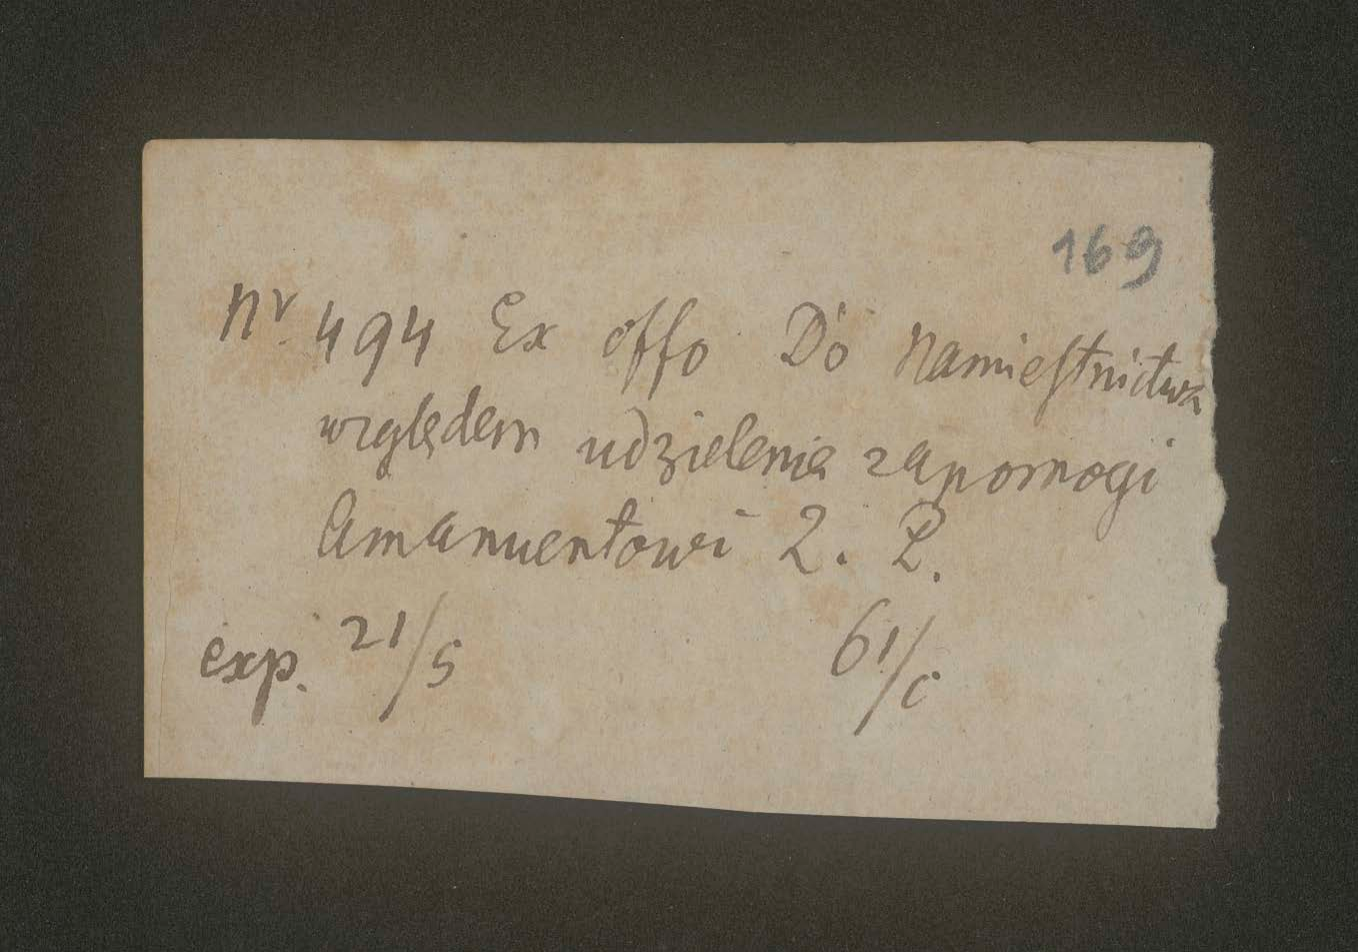 169
Nr 494 Ex offo Do Namiestnictwa
względem udzielenia zapomogi
Amanuentowi Ż. P.
exp. 21/5 61/c